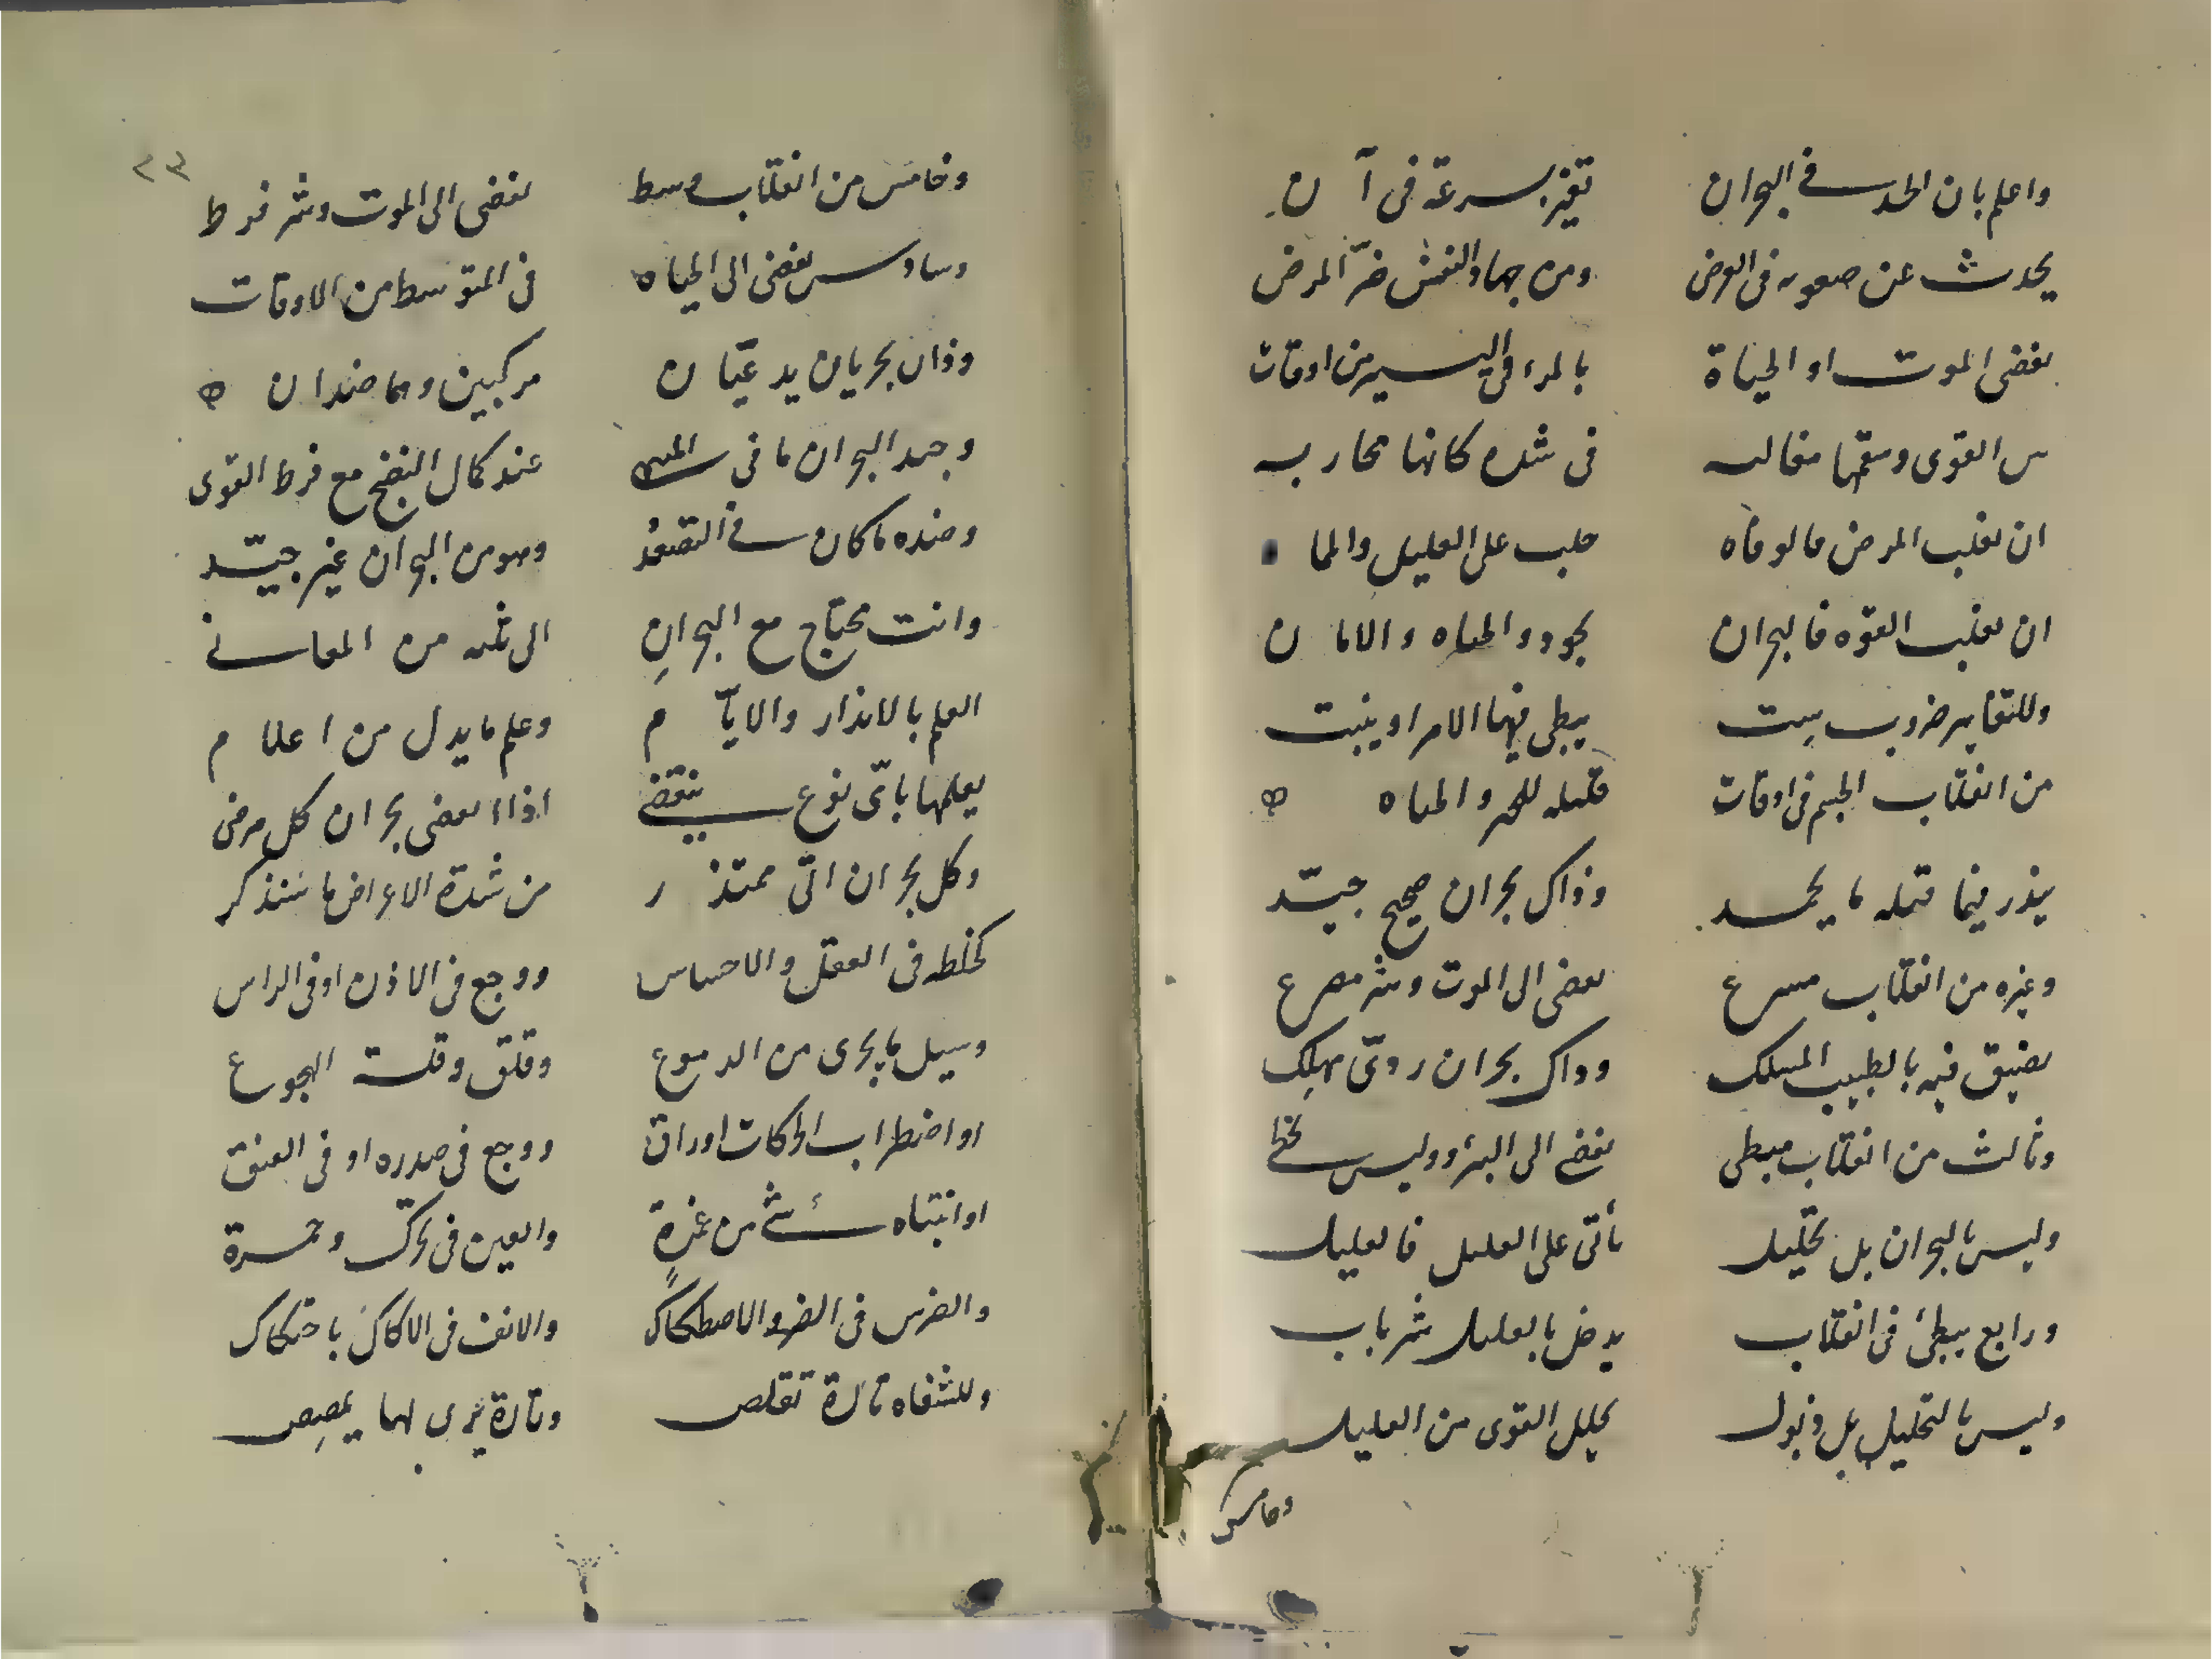 واعلم بان الحد فى البحران تغير بسرعة فى آن
يحدث عن صعوبه فى العرض ومن جهاد النفس ضرّ المرض
يفضى الموت او الحياة بالمرء فى اليسير من اوقات
بين القوى وسقمها مغالبه فى شده كانها محاربه
ان يغلب المرض فالوفاه على العليل والما
ان يغلب القوه فالبحران يجود والحياه والامان
وللتغاير ضروب ست يبطى فيها الامر او ينبت
من انقلاب الجسم فى اوقات والحياه
ينذر فيما قبله ما يحمد وذاك بحران صحيح جيّد
وغيره من انقلاب مسرع يفضى الى الموت وشر مصرع
يضيق فيه بالطبيب المسلك وذاك بحران ردىّ مهلك
وثالث من انقلاب مبطى يفضى الى البرؤ وليس يخطى
وليس بالبحران بل تحليل يأتى على العليل فالعليل
ورابع يبطئ فى انقلاب يدخل بالعليل شر باب
وليس بالتحليل بل ذبول يحلل القوى من العليل
وخامس
٢٣
وخامس من انقلاب وسط يفضى الى الموت وشر فرط
وسادس يفضى الى الحياه فى المتوسط من الاوقات
وذان بحريان يدعيّان مركبين وهما ضدان
وجيد البحران ما فى المنتهى عند كمال النضج مع فرط القوى
وضده ما كان فى التصعد وهو من البحران غير جيّد
وانت تحتاج مع البحرانِ الى ثلثه من المعانى
العلم بالانذار والايآم وعلم ما يدل من اعلام
يعلمها باىّ نوع ينقضى اذا انقضى بحران كل مرض
وكل بحران اتى ممتذر من شدة الاعراض ما سنذكر
كخلطه فى العقل والاحساس ووجع فى الاذن او فى الراس
وسيل ما يجرى من الدموع وقلق وقلة الهجوع
او اضطراب الحركات او راق ووجع فى صدره او فى العنق
او انتباه شئ من غرة والعين فى تحرك وحمرة
والضرس فى الضر والاصطكاك والانف فى الاكال باحتكاك
وللشفاه تارة تقلص وتارة يرى لها يمصص